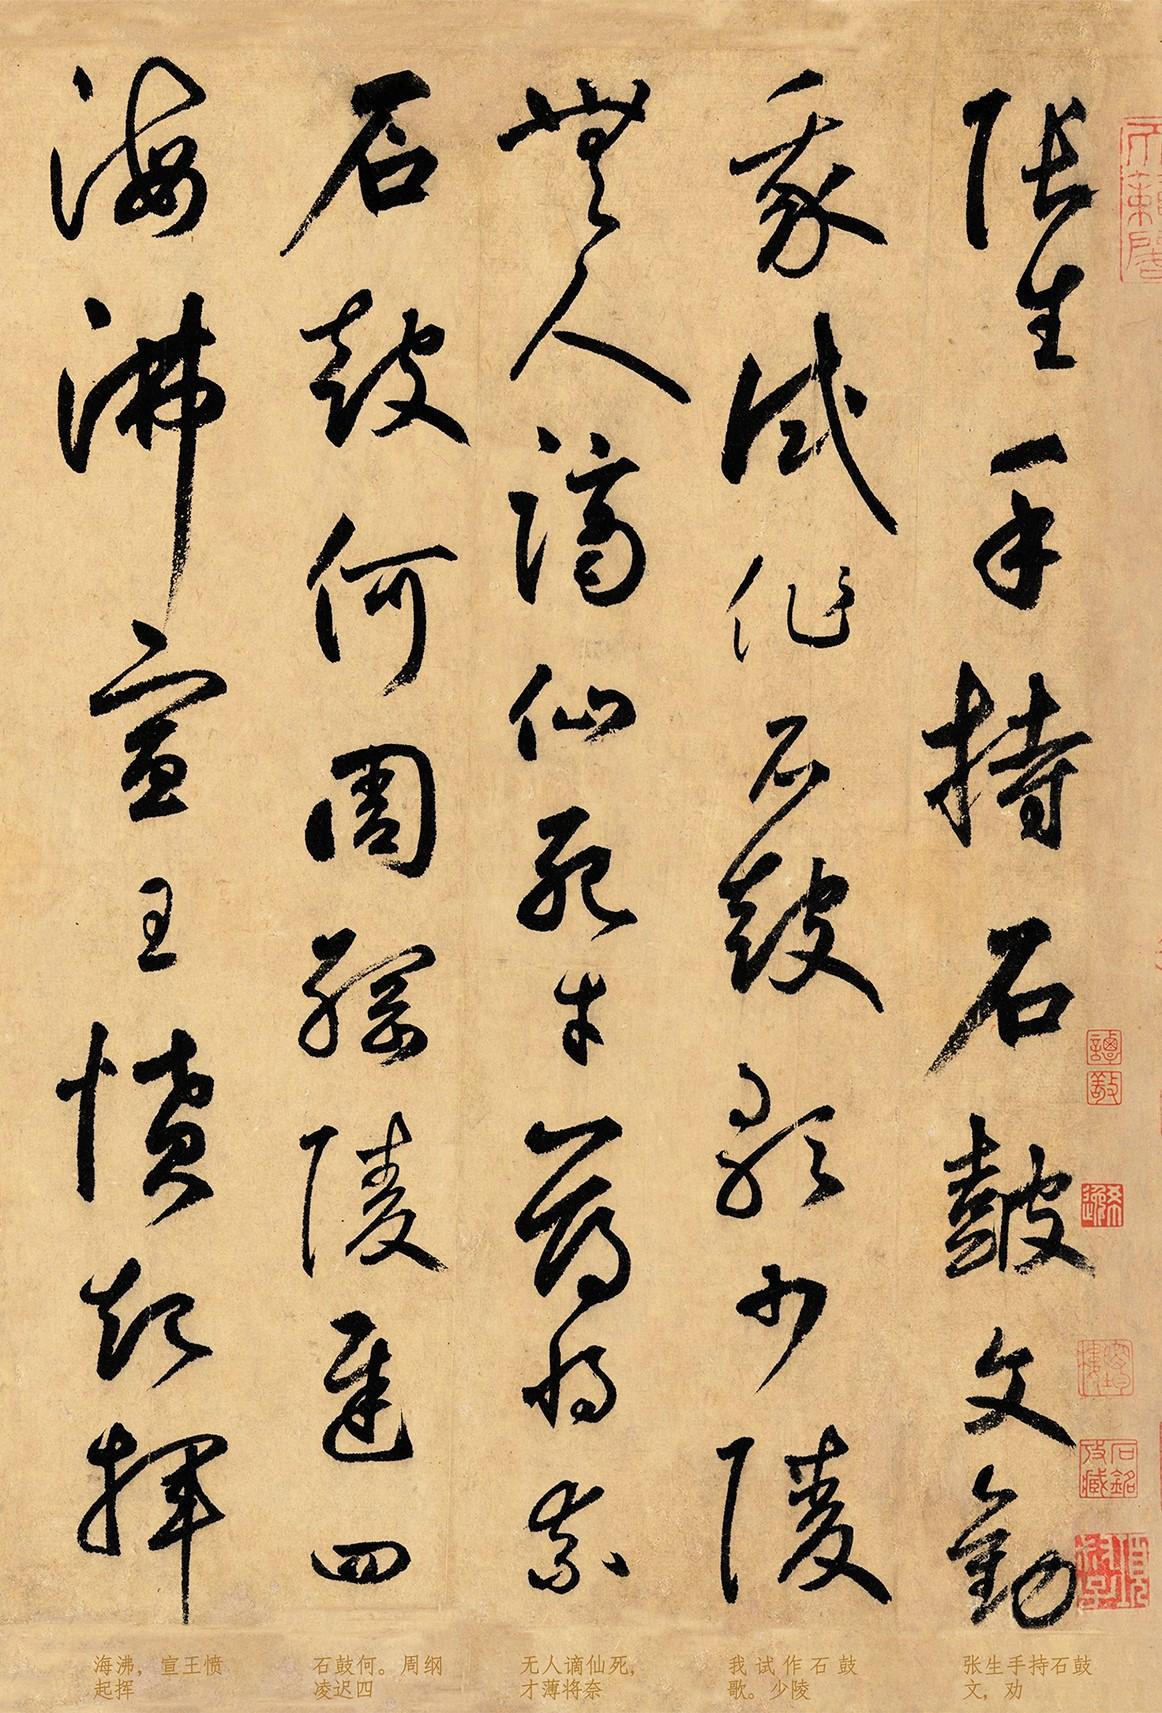 张生手持石鼓文勸
我试作石鼓歌少陵
無人謫仙死才薄将奈
石鼓何周綱陵遲四
海沸宣王憤起揮
张生手持石鼓
文，劝
我试作石鼓
歌。少陵
无人谪仙死，
才薄将奈
石鼓何。周纲
凌迟四
海沸，宣王愤
起挥